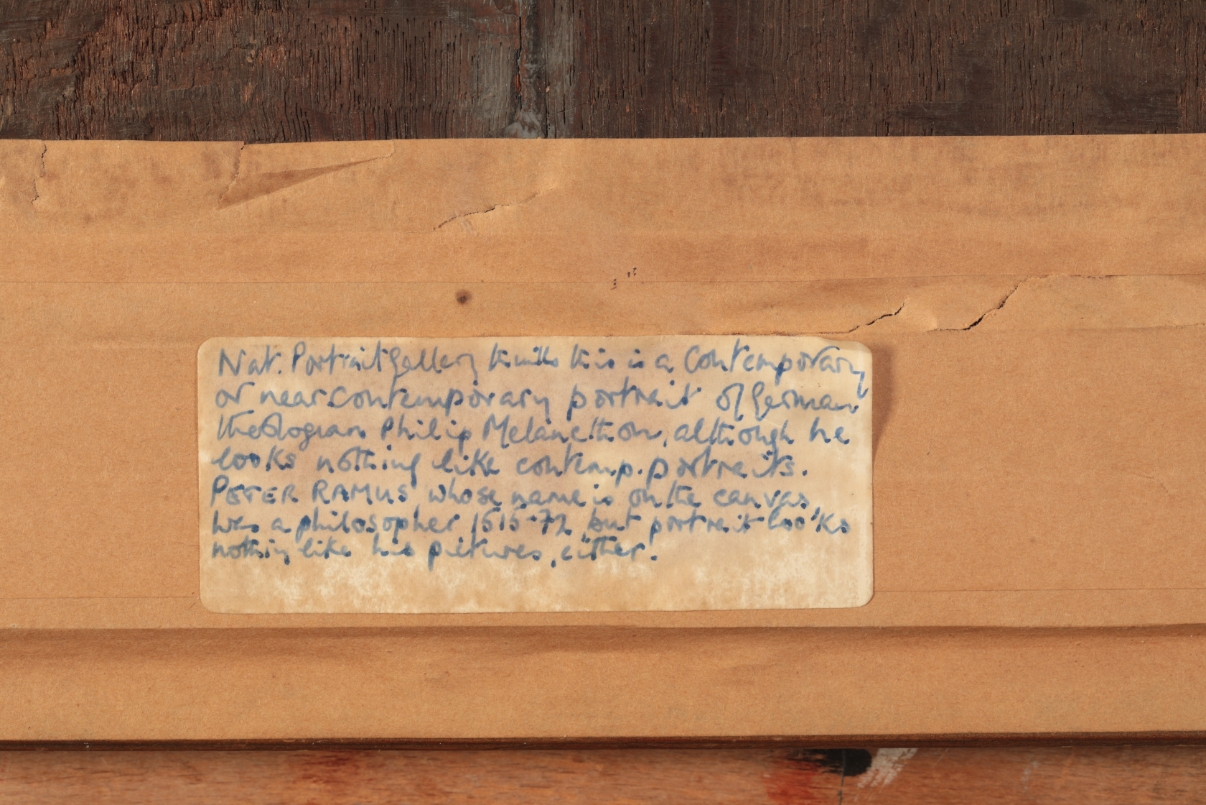 Nat. Portrait Gallery thinks this is a Contemporary
or near contemporary portrait of German
theologian Philip Melancthon, although he
looks nothing like contemp. portraits.
PETER RAMUS whose name is on the canvas
was a philosopher 1515-72, but portrait looks
nothing like his pictures, either!